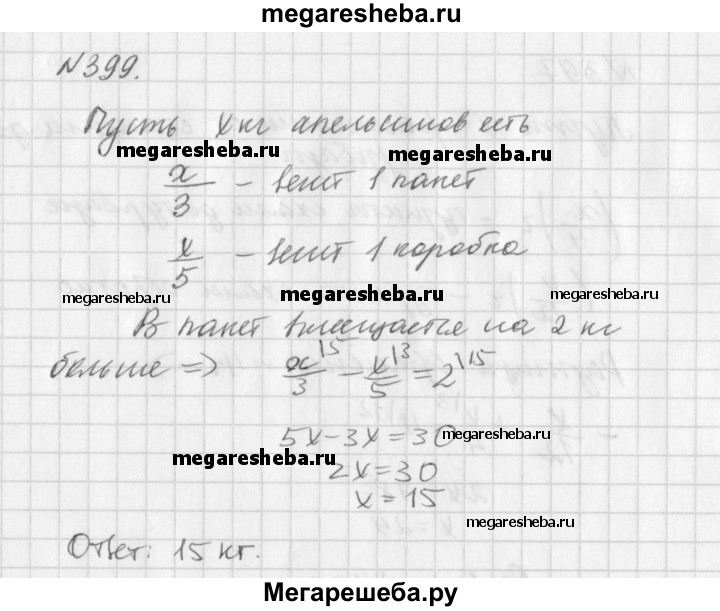 megaresheba.ru
№399.
Пусть x кг апельсинов есть
megaresheba.ru megaresheba.ru
x/3 - весит 1 пакет
x/5 - весит 1 коробка
megaresheba.ru megaresheba.ru megaresheba.ru
В пакет вмещается на 2 кг
больше => x/3 |5 - x/5 |3 = 2 |15
5x-3x=30 megaresheba.ru
megaresheba.ru 2x=30
x=15
megaresheba.ru
Ответ: 15 кг.
Мегарешеба.ру